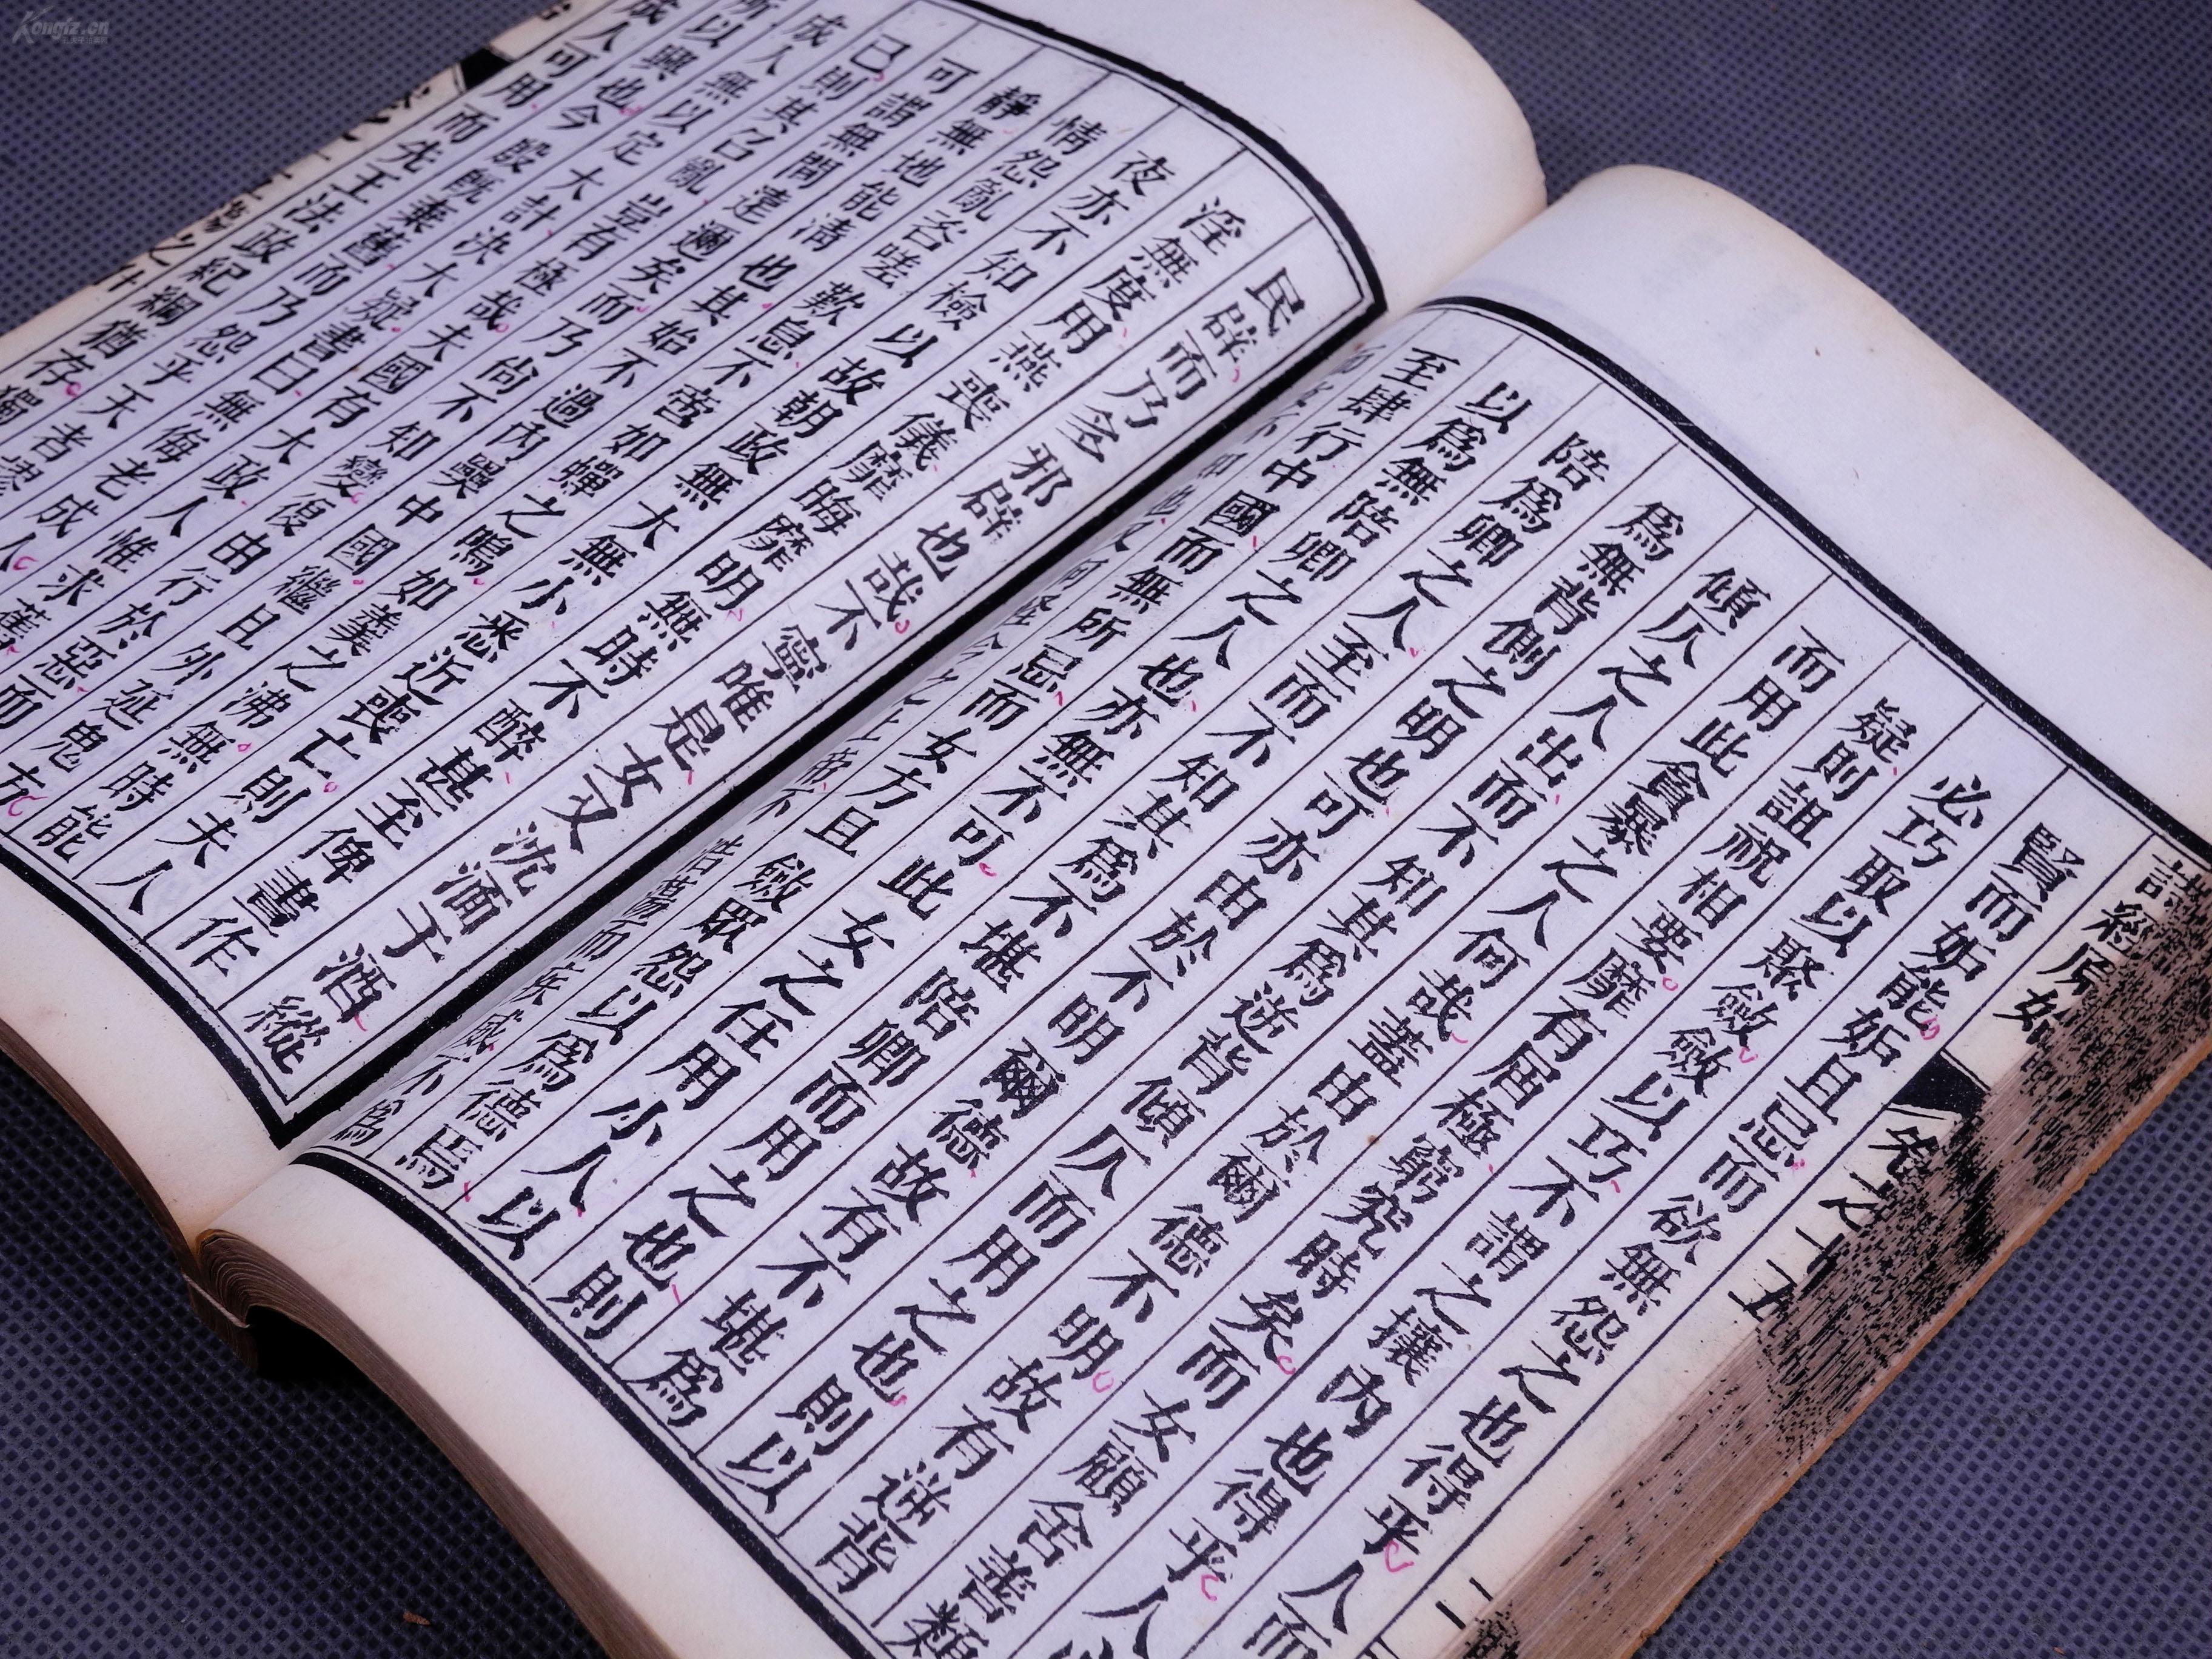 賢而妬能妬且忌而欲無怨之也得乎人而
必巧取以聚斂斂以巧不謂之攘內也得乎人
疑則詛祝相要靡有屆極窮究時矣而女顧舍善類
而用此貪暴之人何哉蓋由於爾德不明故有逆背
傾仄之人出而不知其爲逆背傾仄而用之也則以
爲無背側之明也可亦由於不明爾德故有不堪爲
陪爲卿之人至而不知其爲不堪陪卿而用之也則
以爲無陪卿之人也亦無不可此女之任用小人以
至肆行中國而無所忌而女方且斂眾怨以爲德焉
也又何怪今之上帝不浩蕩而疾威不爲
民辟而乃多邪辟也哉不寧唯是女又沈湎于酒縱
淫無度用燕喪儀靡晦靡明無時不醉甚至俾晝作
夜亦不知檢以故朝政無大無小悉近喪亡則夫人
情怨亂咨嗟歎息不啻如蟬之鳴如羹之沸無時能
靜無地能清也其始不過內奧中國繼且外延鬼方
可謂無間遠邇矣而乃尚不知變復由行於惡而
已則其召亂豈有極哉夫國有大政人惟求舊
成人無以定大計決大疑書曰無侮老成人
所以興也今殷既棄舊而乃怨乎天者
成人可用而先王法政紀綱猶存獨
詩經原始
卷之十五
Kongfz.cn